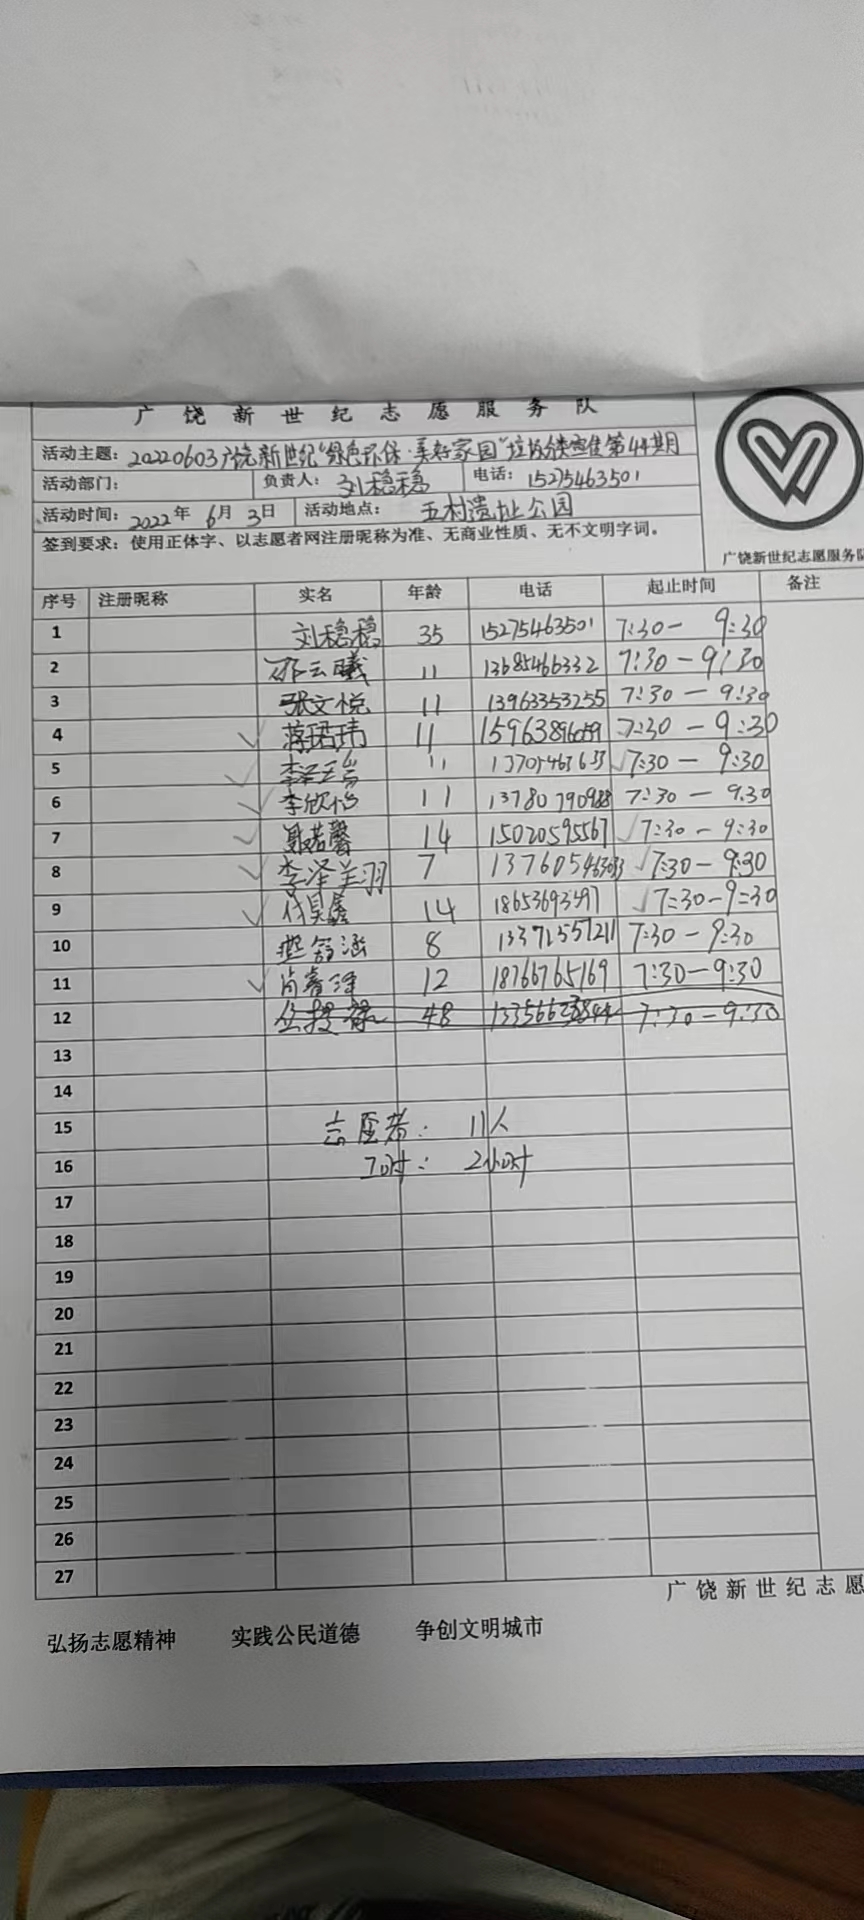 广饶新世纪志愿服务队
活动主题：20220603广饶新世纪“绿色环保·美好家园”垃圾分类宣传第44期
活动部门： 负责人：刘稳稳 电话：15275463501
活动时间：2022年6月3日 活动地点：五村遗址公园
签到要求：使用正体字、以志愿者网注册昵称为准、无商业性质、无不文明字词。
广饶新世纪志愿服务队
序号 注册昵称 实名 年龄 电话 起止时间 备注
1 刘稳稳 35 15275463501 7:30－9:30
2 邵云曦 11 13685466332 7:30－9:30
3 张文悦 11 13963353255 7:30－9:30
4 蒋珺玮 11 15963896059 7:30－9:30
5 11 7:30－9:30
6 李欣怡 11 13780790988 7:30－9:30
7 聂若馨 14 15020595567 7:30－9:30
8 李泽羽 7 7:30－9:30
9 付昊鑫 14 18653693597 7:30－9:30
10 8 13371557211 7:30－9:30
11 12 18766765169 7:30－9:30
12 48 7:30－9:30
13
14
15 志愿者：11人
16 工时：2小时
17
18
19
20
21
22
23
24
25
26
27
广饶新世纪志愿
弘扬志愿精神 实践公民道德 争创文明城市